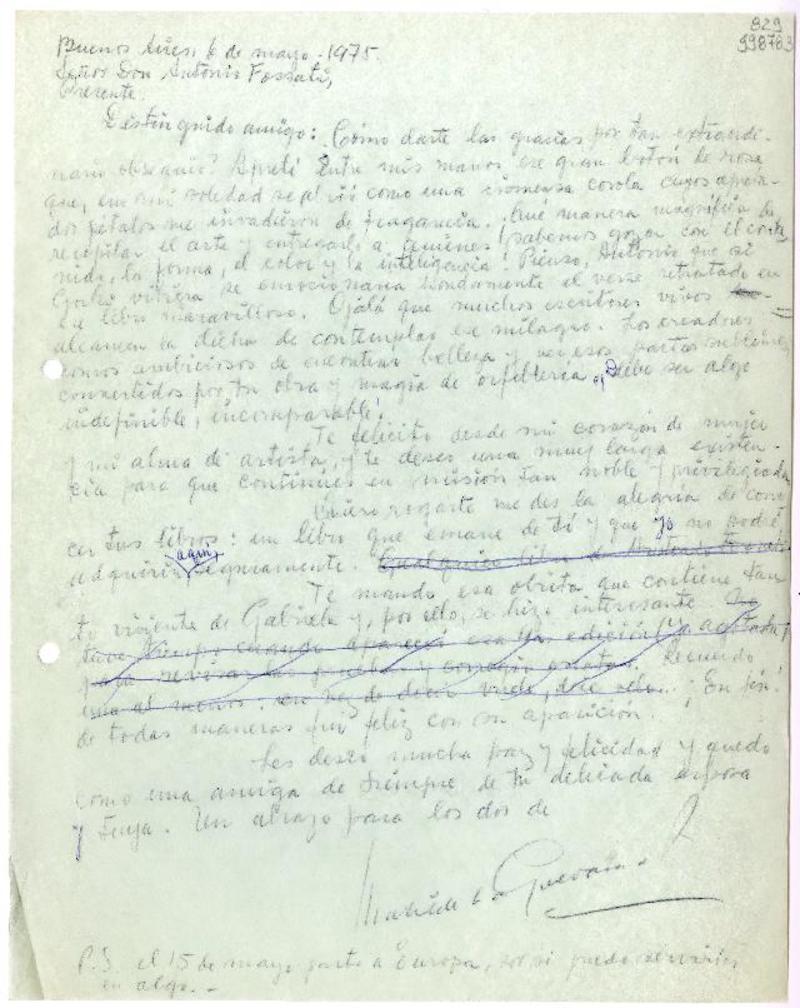 829
998763
Buenos Aires, 6 de mayo - 1975.
Señor Don Antonio Fossati,
Presente.
Distinguido amigo: Cómo darte las gracias por tan extraordi-
nario obsequio? Apreté entre mis manos ese gran botón de rosa
que, en mi soledad se abrió como una inmensa corola cuyos apreta-
dos pétalos me invadieron de fragancia. ¡Qué manera magnífica de
recopilar el arte y entregarlo a quienes sabemos gozar con el conte-
nido, la forma, el color y la inteligencia! Pienso, Antonio que si
Gorki viviera se emocionaría hondamente al verse retratado en
ese libro maravilloso. Ojalá que muchos escritores vivos
alcancen la dicha de contemplar ese milagro. Los creadores
somos ambiciosos de encontrar belleza y ver esos partos sublimes
convertidos por tu obra y magia de orfebrería. Debe ser algo
indefinible, incomparable!
Te felicito desde mi corazón de mujer
y mi alma de artista, y te deseo una muy larga existen-
cia para que continúes en misión tan noble y privilegiada
Quiero rogarte me des la alegría de cono
cer tus libros: un libro que emane de tí y que yo no podré
adquirir aquí, seguramente. Cualquier libro
Te mando esa obrita que contiene tan
to viviente de Gabriela y, por ello, se hizo interesante. No
tuve tiempo cuando apareció esa 1ra edición (ya agotada)
para revisar las pruebas y corregir erratas. Recuerdo
una al menos: en vez de decir vida, dice
¡En fin!
de todas maneras fui feliz con su aparición.
Les deseo mucha paz y felicidad y quedo
como una amiga de siempre, de tu delicada esposa
y tuya. Un abrazo para los dos de
Matilde L. de Guevara
P.S. el 15 de mayo parto a Europa, por si puedo servirles
en algo. -